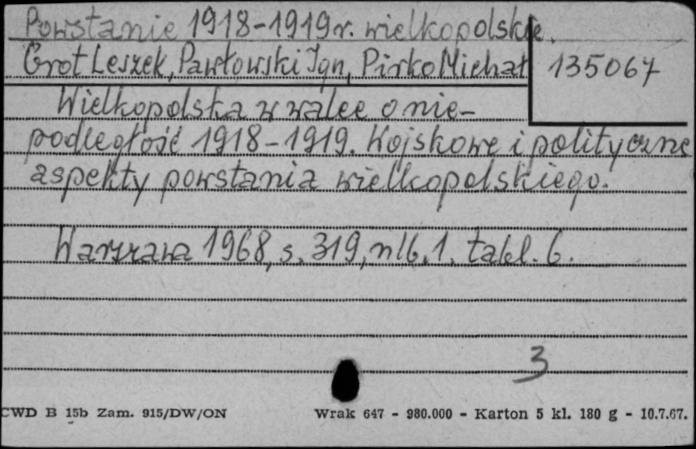 Powstanie 1918-1919 r. wielkopolskie.
Grot Leszek, Pawłowski Ign, Pirko Michał
135067
Wielkopolska w walce o nie-
podległość 1918-1919. Wojskowe i polityczne
aspekty powstania wielkopolskiego.
Warszawa 1968, s. 319, nlb. 1. tabl. 6.
3
CWD B 15b Zam. 915/DW/ON Wrak 647 - 980.000 - Karton 5 kl. 180 g - 10.7.67.